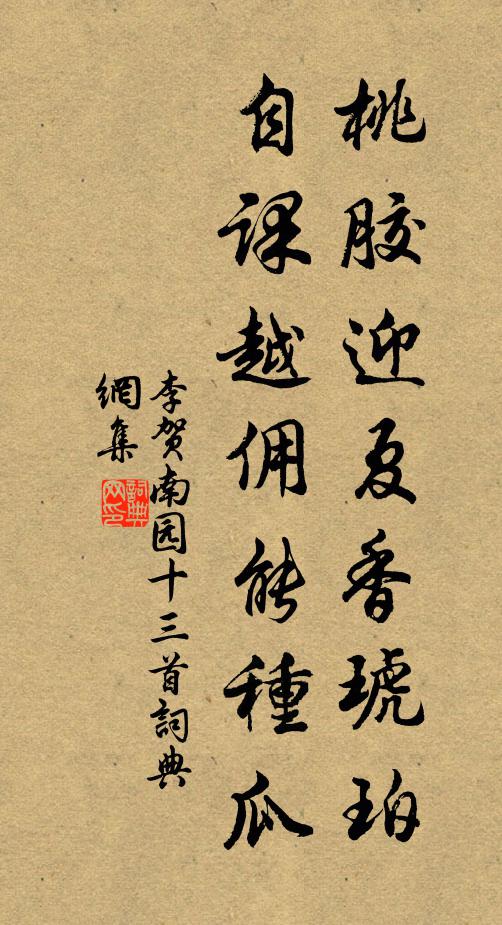 桃胶迎夏香琥珀
自课越佣能種瓜
李贺南园十三首詞典
網集
詞典网印